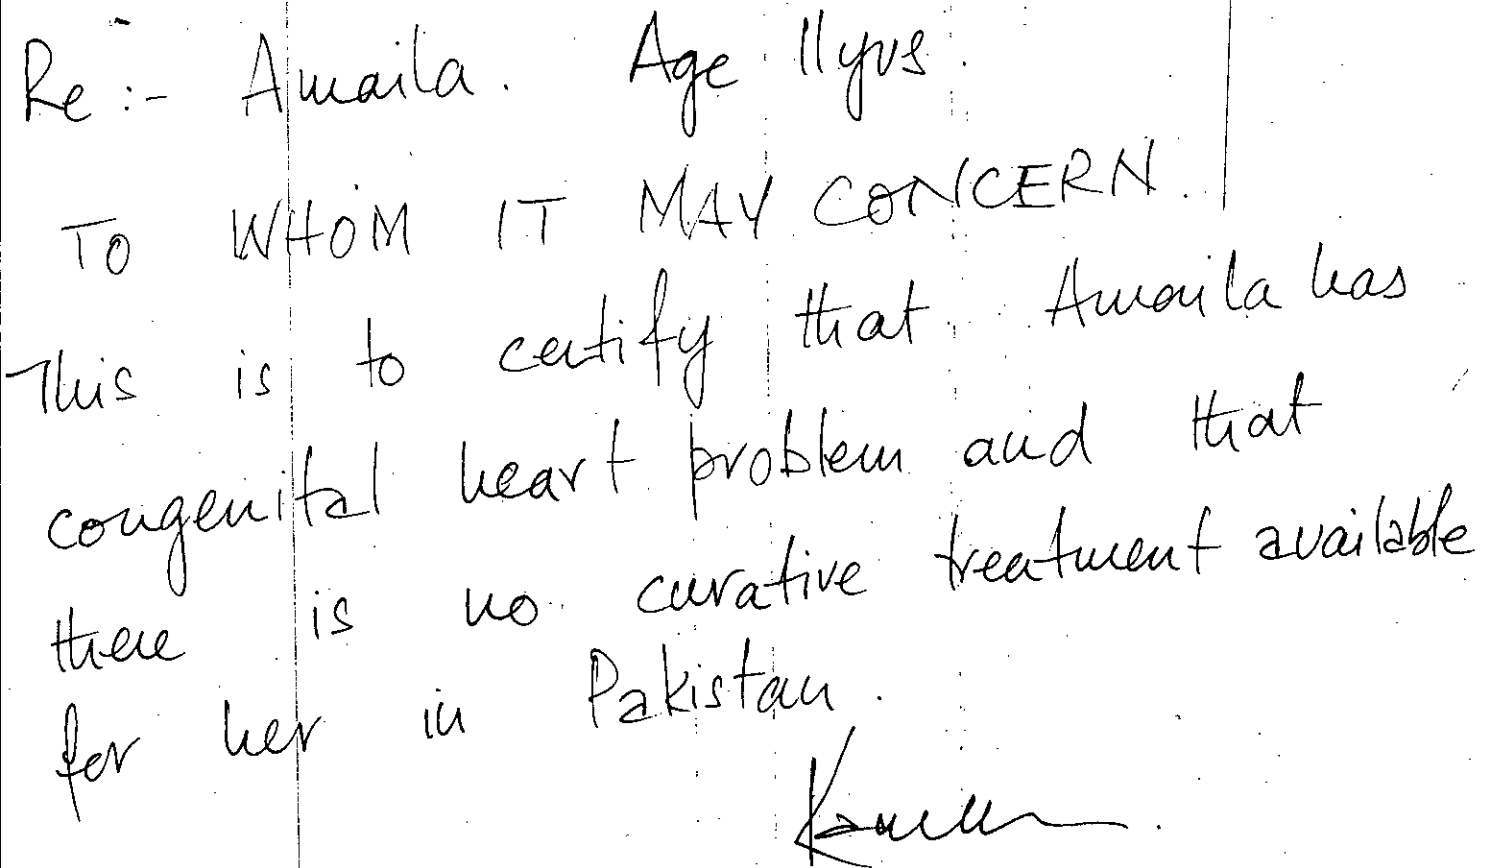 Re :- Amaila. Age 11yrs.
TO WHOM IT MAY CONCERN.
This is to certify that Amaila has
congenital heart problem and that
there is no curative treatment available
for her in Pakistan.